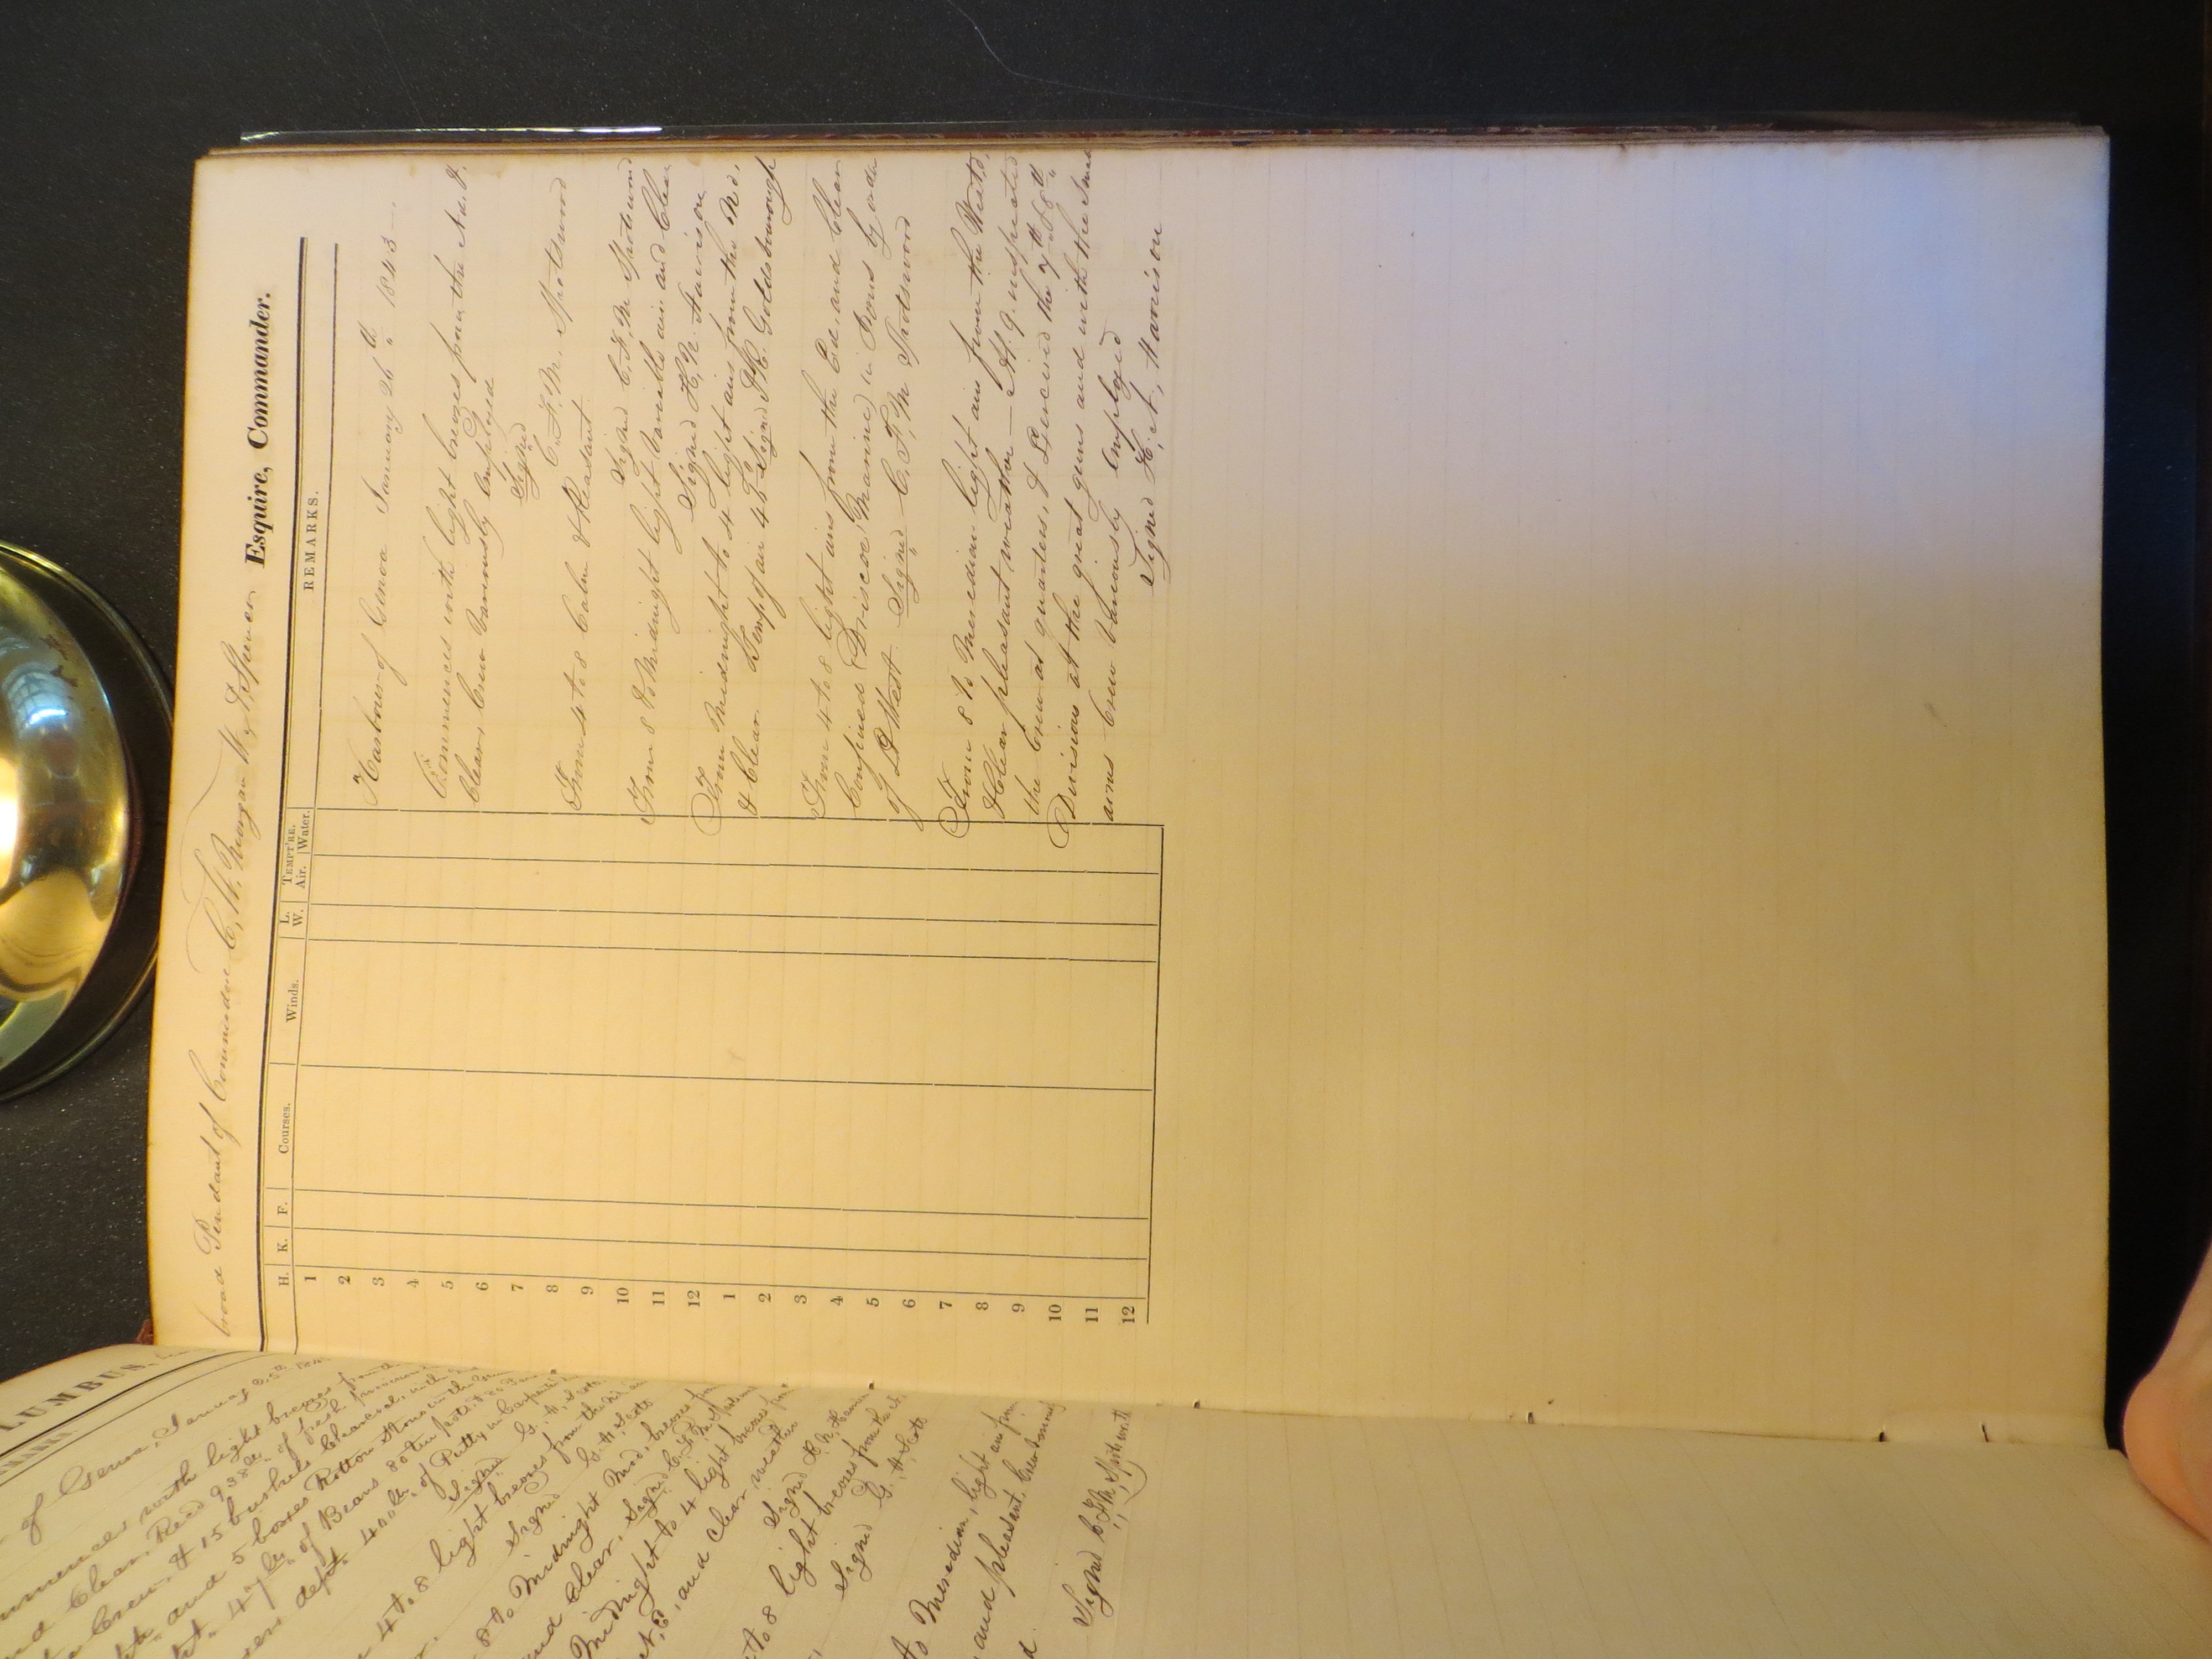 LUMBUS,
of Genoa, January 25th 184
mmences with light breezes from the
nd Clear, Recd 938 lbs of fresh
Crew, & 15 bushels Charcoal,
and 5 boxes Rotton Stone
47 lbs of Beans 80
dept 400 lbs of Putty
Signed G. A. Scott
4 to 8 light breezes from the
Signed G. A. Scott
8 to Midnight Mod. breezes
and Clear, Signed C. F. M. Spotswood
Midnight to 4 light breezes from
and clear weather
Signed H. N. Harrison
4 to 8 light breezes from
Signed G. A. Scott
to Meredian, light airs from
and pleasant, Crew
Signed C. F. M. Spotswood
broad Pendant of Commodore C. W. Morgan W. A. Spencer Esquire, Commander.
H. K. F. Courses. Winds. L. W. TEMPT'RE. Air. Water. REMARKS.
1
2
3
4
5
6
7
8
9
10
11
12
1
2
3
4
5
6
7
8
9
10
11
12
Harbour of Genoa January 26th 1843
Commences with light breezes from the Nd &
Clear, Crew variously employed
Signed
C. F. M. Spotswood
From 4 to 8 Calm & Pleasant
Signed C. F. M Spotswood
From 8 to Midnight light variable airs and Clear
Signed H. N. Harrison
From Midnight to 4 light airs from the Nd,
& Clear. Temp of air 48° Signed Goldsborough
From 4 to 8 light airs from the Ed, and Clear
Confined Driscoe (Marine) in Irons by order
of Lt West. Signed C. F. M Spotswood
From 8 to Meredian light airs from the Westd,
& Clear pleasant weather — At 9 inspected
the Crew at quarters, & Exercised the 7th & 8th
Divisions at the great guns and with the small
arms Crew variously employed
Signed H. N. Harrison